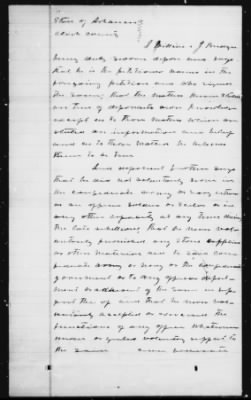 State of Arkansas
Clark County
being duly sworn deposes and says
that he is the petitioner named in the
foregoing petition and who signed
the same; that the matters therein stated
are true of deponents own knowledge
except as to those matters which are
stated on information and belief
and as to those matters he believes
them to be true
And deponent further says
that he did not voluntarily serve in
the confederate army or navy either
as an officer soldier or sailor or in
any other capacity at any time during
the late rebellion; that he never vol-
untarily furnished any stores supplies
or other materials aid to said con-
federate army or navy or the confederate
government or to any officer depart-
ment or adherent of the same in sup-
port thereof and that he never vol-
untarily accepted or exercised the
functions of any office whatsoever
under or yielded voluntary support to
the same